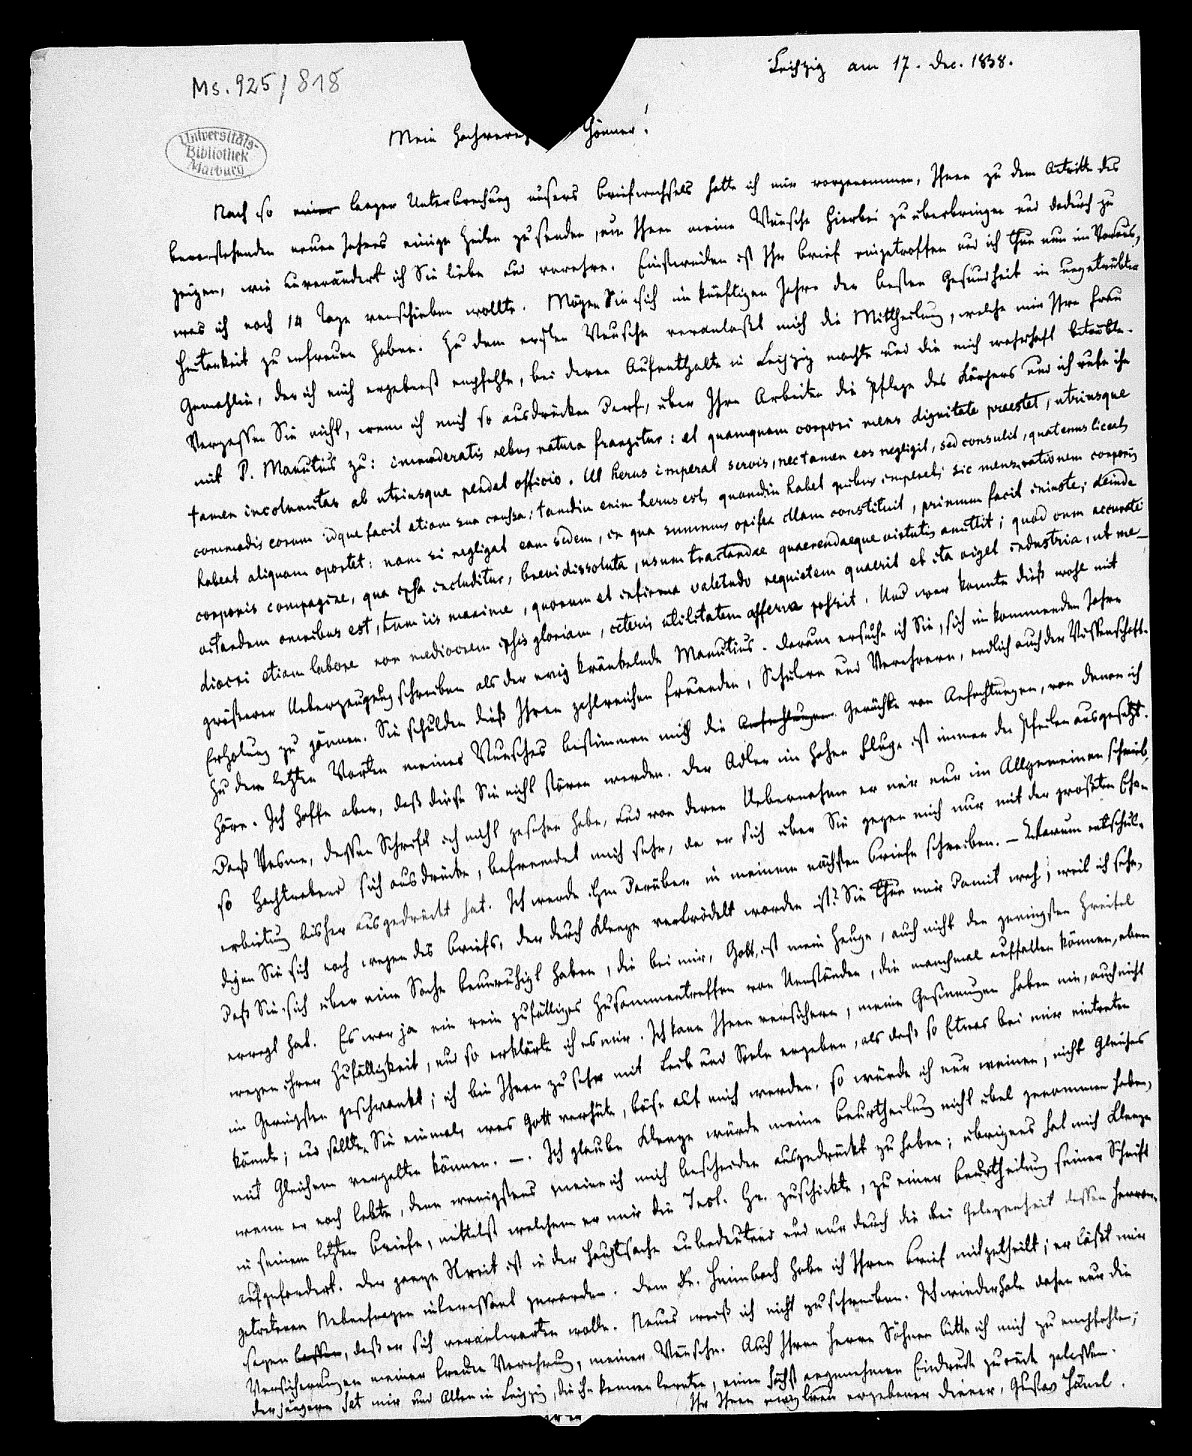 Ms. 925/818
Leipzig am 17. Dec. 1838.
Universitäts-
Bibliothek
Marburg
Mein Hochver Gönner!
Nach so einer langen Unterbrechung unsers Briefwechsels hatte ich mir vorgenommen, Ihnen zu dem Antritte des
bevorstehenden neuen Jahres einige Zeilen zu senden, um Ihnen meine Wünsche hierbei zu überbringen und dadurch zu
zeigen, wie unverändert ich Sie liebe und verehre. Einstweilen ist Ihr Brief eingetroffen und ich thue nun im Voraus,
was ich noch 14 Tage verschieben wollte. Mögen Sie sich im künftigen Jahre der besten Gesundheit in ungetrübter
Heiterkeit zu erfreuen haben. Zu dem ersten Wunsche veranlaßt mich die Mittheilung, welche mir Ihre Frau
Gemahlin, der ich mich ergebenst empfehle, bei deren Aufenthalte in Leipzig machte und die mich wahrhaft betrübte.
Vergessen Sie nicht, wenn ich mich so ausdrücken darf, über Ihren Arbeiten die Pflege des Körpers und ich rufe ihnen
mit P. Manutius zu: immoderatis rebus natura frangitur: et quamquam corpori mens dignitate praestet, utriusque
tamen incolumitas ab utriusque pendet officio. Ut herus imperat servis, nec tamen eos negligit, sed consulit, quatenus licet,
commodis eorum idque facit etiam sua causa; tamdiu enim herus est, quamdiu habet quibus imperet; sic mens rationem corporis
habeat aliquam oportet: nam si negligat eam sedem, in qua summus opifex illam constituit, primum facit iniuste; deinde
corporis compagine, qua ipsa includitur, brevi dissoluta, usum tractandae quaerendaeque virtutis amittit; quod cum accurate
vitandum omnibus est, tum iis maxime, quorum et infirma valetudo requietem quaerit et ita viget industria, ut me-
diocri etiam labore non mediocrem ipsis gloriam, ceteris utilitatem afferre possit. Und wer konnte dieß wohl mit
größerer Ueberzeugung schreiben als der ewig kränkelnde Manutius. Darum ersuche ich Sie, sich im kommenden Jahre
Erholung zu gönnen. Sie schulden dieß Ihren zahlreichen Freunden, Schülern und Verehrern, endlich auch der Wissenschaft.
Zu dem letzten Worten meines Wunsches bestimmen mich die Anfechtungen Gerüchte von Anfechtungen, von denen ich
höre. Ich hoffe aber, daß diese Sie nicht stören werden. Der Adler im hohen Fluge ist immer den Pfeilen ausgesetzt.
Daß Vesme, dessen Schrift ich nicht gesehen habe, und von deren Uebernahme er mir nur im Allgemeinen schrieb,
so hochtrabend sich ausdrücke, befremdet mich sehr, da er sich über Sie gegen mich nur mit der größten Ehr-
erbietung bisher ausgedrückt hat. Ich werde ihm darüber in meinem nächsten Briefe schreiben. – Warum entschul-
digen Sie sich noch wegen des Briefs, der durch Klenze verbrödelt worden ist? Sie thun mir damit weh; weil ich sehe,
daß Sie sich über eine Sache beunruhigt haben, die bei mir, Gott ist mein Zeuge, auch nicht den geringsten Zweifel
erregt hat. Es war ja ein rein zufälliges Zusammentreffen von Umständen, die manchmal auffallen können, eben
wegen ihrer Zufälligkeit, und so erklärte ich es mir. Ich kann Ihnen versichern, meine Gesinnungen haben nie, auch nicht
im Geringsten geschwankt; ich bin Ihnen zu sehr mit Leib und Seele ergeben, als daß so Etwas bei mir eintreten
könnte; und sollten Sie einmal, was Gott verhüte, böse auf mich werden, so würde ich nur weinen, nicht Gleiches
mit Gleichem vergelten können. –. Ich glaube Klenze würde meine Beurtheilung nicht übel genommen haben,
wenn er noch lebte, denn wenigstens meine ich mich bescheiden ausgedrückt zu haben; übrigens hat mich Klenze
in seinem letzten Briefe, mittelst welchem er mir die Inst. Gr. zuschickte, zu einer Beurtheilung seiner Schrift
aufgefordert. Der ganze Streit ist in der Hauptsache unbedeutend und nur durch die bei Gelegenheit dessen hervor-
getretenen Nebenfragen interessant geworden. Dem Dr. Heimbach habe ich Ihren Brief mitgetheilt; er läßt mir
sagen lassen, daß er sich verantworten wolle. Neues weiß ich nicht zu schreiben. Ich wiederhole daher nur die
Versicherungen meiner treuen Verehrung, meiner Wünsche. Auch Ihren Herren Söhnen bitte ich mich zu empfehlen;
der jüngere hat mir und Allen in Leipzig, die ihn kennen lernten, einen höchst angenehmen Eindruck zurück gelassen.
Ihr Ihnen ewig treu ergebener Diener, Gustav Hänel.